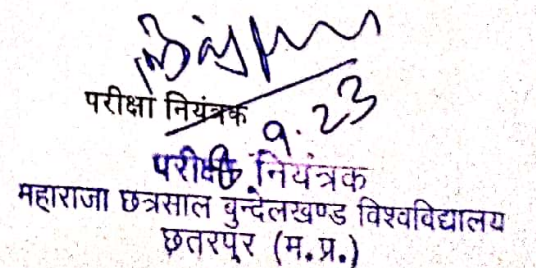 परीक्षा नियंत्रक
9.23
परीक्षा नियंत्रक
महाराजा छत्रसाल बुन्देलखण्ड विश्वविद्यालय
छतरपुर (म.प्र.)